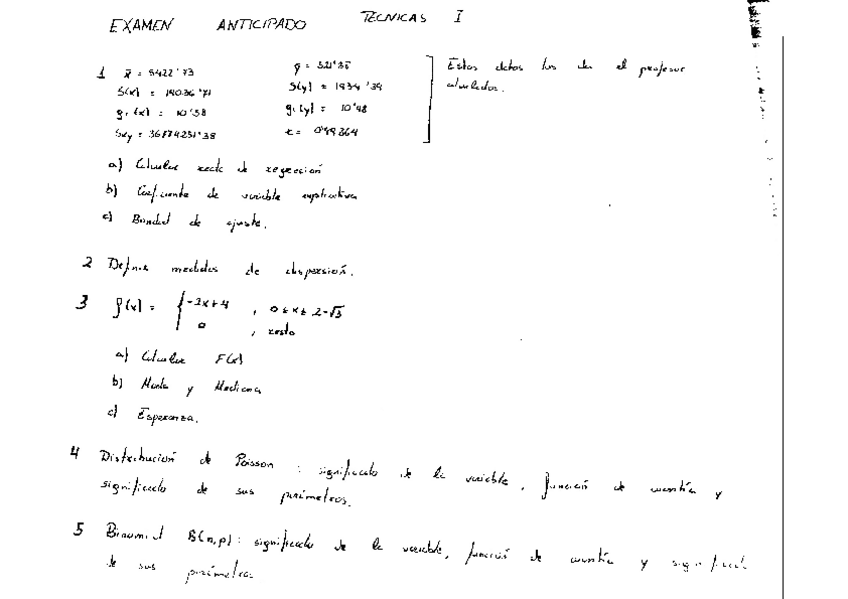 EXAMEN ANTICIPADO TECNICAS I
1 x̄ = 5422'73 ȳ = 521'35
S(x) = 19036'71 S(y) = 1934'39
g₁(x) = 10'58 g₁(y) = 10'48
Sxy = 36774251'38 r = 0'99864
Estos datos los da el profesor
calculados.
a) Calcular recta de regresión
b) Coeficiente de variable explicativa
c) Bondad de ajuste.
2 Definir medidas de dispersión.
3 f(x) = { -2x+4 , 0≤x≤2-√3
0 , resto
a) Calcular F(x)
b) Moda y Mediana
c) Esperanza.
4 Distribución de Poisson : significado de la variable, función de cuantía y
significado de sus parámetros.
5 Binomial B(n,p) : significado de la variable, función de cuantía y significado
de sus parámetros